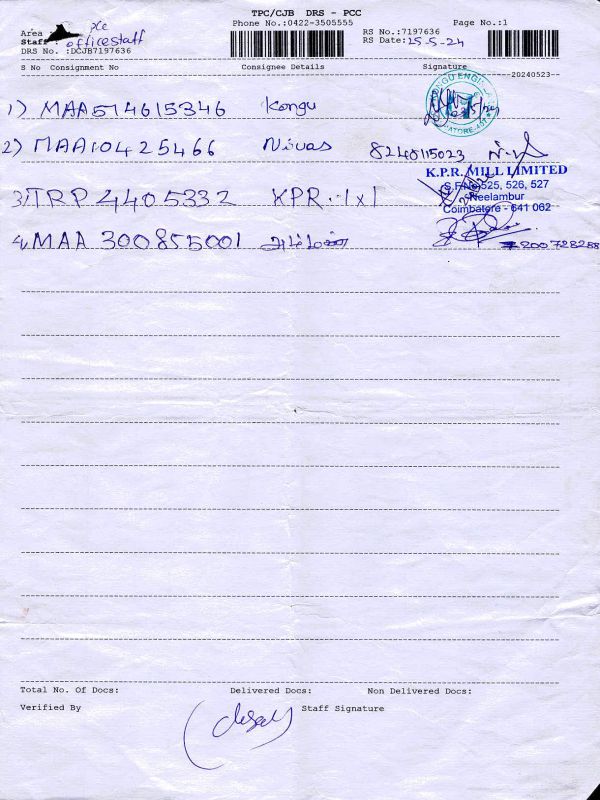 TPC/CJB DRS - PCC
Phone No.:0422-3505555 Page No.:1
Area : pcc RS No.:7197636
Staff : officestaff RS Date:25-5-24
DRS No. :DCJB7197636
S No Consignment No Consignee Details Signature
--20240523--
1) MAA574615346 Kongu
2) MAA10425466 Nivas 8240115023
K.P.R. MILL LIMITED
3) TRP 4405332 KPR. 1x1 S.F.No 525, 526, 527
Neelambur
Coimbatore - 641 062
4) MAA 300855001
7200728288
Total No. Of Docs: Delivered Docs: Non Delivered Docs:
Verified By Staff Signature